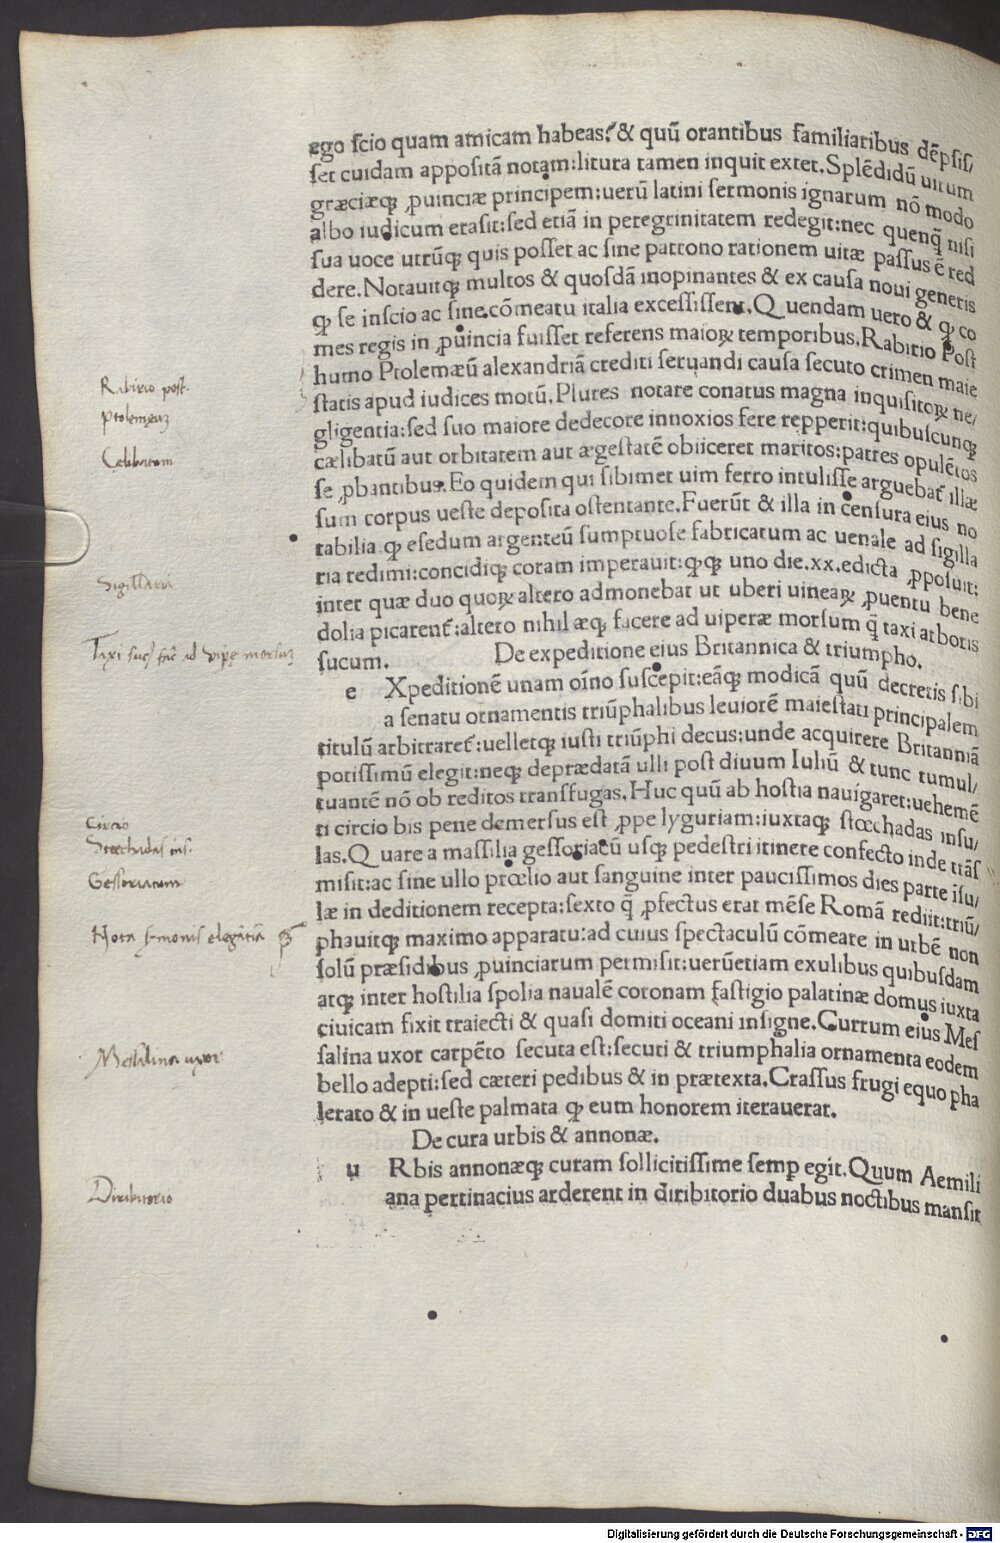 ego scio quam amicam habeas? & quū orantibus familiaribus dēpsis/
set cuidam appositā notam: litura tamen inquit extet. Splēdidū uirum
græciæq; ꝓuinciæ principem: uerū latini sermonis ignarum nō modo
albo iudicum erasit: sed etiā in peregrinitatem redegit: nec quenq̄ nisi
sua uoce utrūq; quis posset ac sine patrono rationem uitæ passus ē red
dere. Notauitq; multos & quosdā inopinantes & ex causa noui generis
ꝙ se inscio ac sine cōmeatu italia excessissent. Quendam uero & ꝙ co
mes regis in ꝓuincia fuisset referens maioꝝ temporibus. Rabirio Post
humo Ptolemæū alexandriā crediti seruandi causa secuto crimen maie
statis apud iudices motū. Plures notare conatus magna inquisitoꝝ ne/
gligentia: sed suo maiore dedecore innoxios fere repperit: quibuscunq;
cælibatū aut orbitatem aut ægestatē obiiceret maritos: patres opulētos
se ꝓbantibus. Eo quidem qui sibimet uim ferro intulisse arguebat̄ illæ
sum corpus ueste deposita ostentante. Fuerūt & illa in censura eius no
tabilia ꝙ esedum argenteū sumptuose fabricatum ac uenale ad sigilla
ria redimi: concidiq; coram imperauit: ꝙq; uno die .xx. edicta ꝓposuit:
inter quæ duo quoꝝ altero admonebat ut uberi uineaꝝ ꝓuentu bene
dolia picarent̄: altero nihil æq; facere ad uiperæ morsum q̄ taxi arboris
sucum. De expeditione eius Britannica & triumpho.
e Xpeditionē unam oīno suscepit: eāq; modicā quū decretis sibi
a senatu ornamentis triūphalibus leuiorē maiestati principalem
titulū arbitraret̄: uelletq; iusti triūphi decus: unde acquirere Britanniā
potissimū elegit: neq; deprædatā ulli post diuum Iuliū & tunc tumul/
tuantē nō ob reditos transfugas. Huc quū ab hostia nauigaret: uehemē
ti circio bis pene demersus est ꝓpe lyguriam: iuxtaq; stœchadas insu/
las. Quare a massilia gessoriacū usq; pedestri itinere confecto inde trās
misit: ac sine ullo prœlio aut sanguine inter paucissimos dies parte isu/
læ in deditionem recepta: sexto q̄ ꝓfectus erat mēse Romā rediit: triū/
phauitq; maximo apparatu: ad cuius spectaculū cōmeare in urbē non
solū præsidibus ꝓuinciarum permisit: uerūetiam exulibus quibusdam
atq; inter hostilia spolia naualē coronam fastigio palatinæ domus iuxta
ciuicam fixit traiecti & quasi domiti oceani insigne. Currum eius Mes
salina uxor carpēto secuta est: secuti & triumphalia ornamenta eodem
bello adepti: sed cæteri pedibus & in prætexta. Crassus frugi equo pha
lerato & in ueste palmata ꝙ eum honorem iterauerat.
De cura urbis & annonæ.
u Rbis annonæq; curam sollicitissime semꝑ egit. Quum Aemili
ana pertinacius arderent in diribitorio duabus noctibus mansit
Rabirio post.
ptolemæus
Celibatum
Sigillaria
Taxi suc⁹ fac̄ ad vipe morsum
Circio
Stœchadas ins.
Gessoriacum
Nota sermonis elegātiā
Messalina uxor
Diribitorio
Digitalisierung gefördert durch die Deutsche Forschungsgemeinschaft - DFG